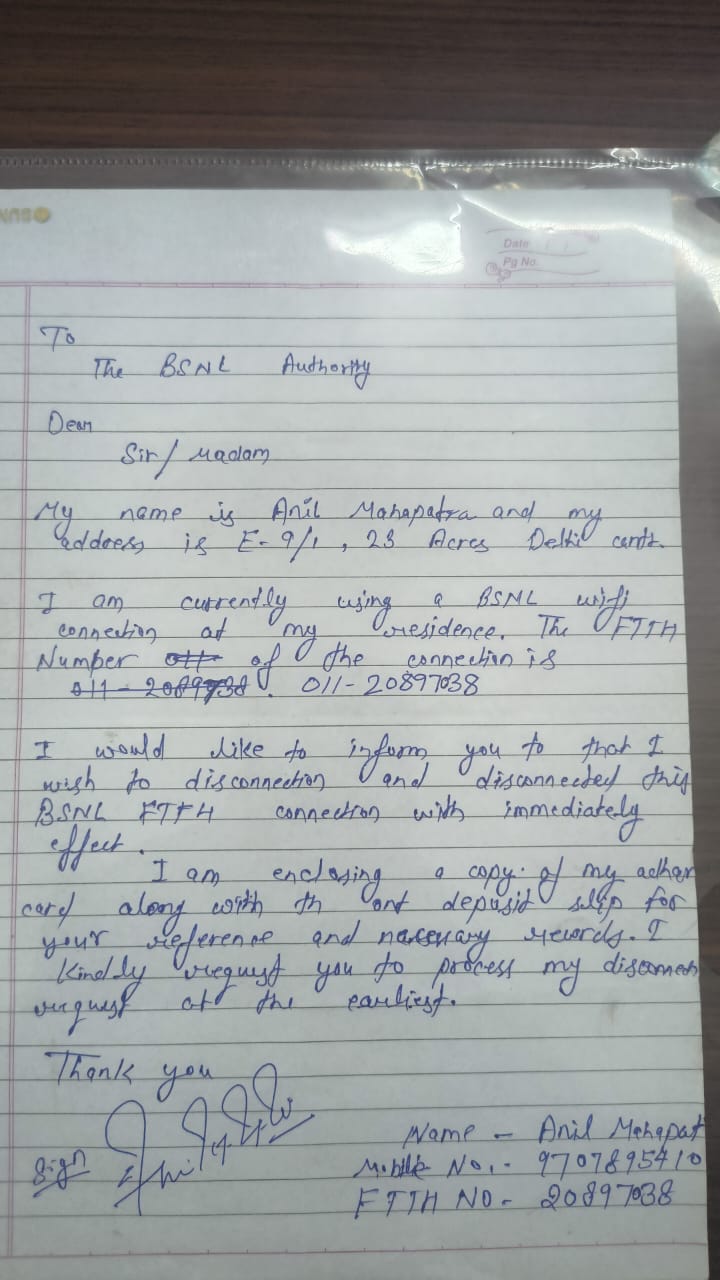 Date
Pg No.
To
The BSNL Authority
Dear
Sir/ Madam
My name is Anil Mahapatra and my
address is E-9/1, 23 Acres Delhi cantt.
I am currently using a BSNL wifi
connection at my residence. The FTTH
Number of the connection is
011-20897038
I would like to inform you to that I
wish to disconnection and disconnected this
BSNL FTTH connection with immediately
effect.
I am enclosing a copy of my adhar
card along with th ont deposit slip for
your reference and necessary records. I
kindly request you to process my
request at the earliest.
Thank you
Sign
Name - Anil Mahapat
Mobile No.- 9707895410
FTTH NO - 20897038